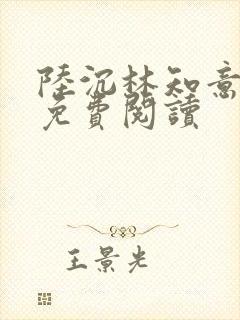 陸沉林知意
免費閱讀
王景光